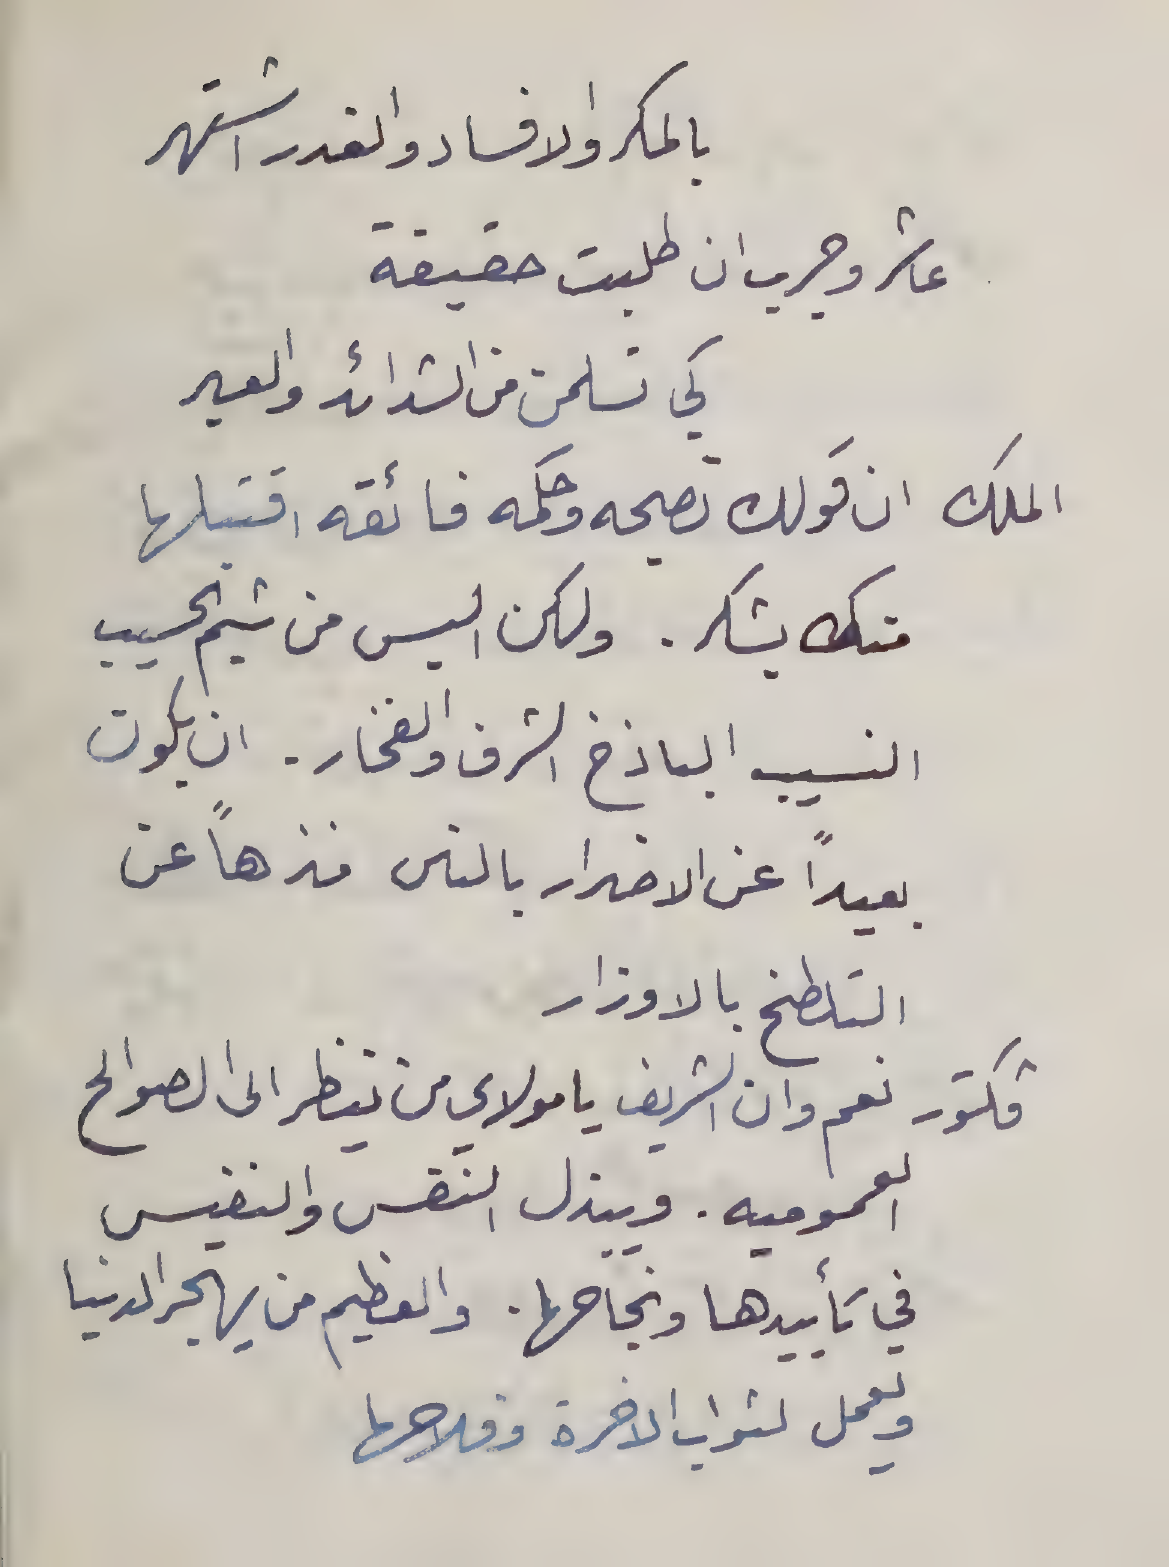 بالمكر والافساد والغدر اشتهر
عاشر وجرب ان طلبت حقيقة
كي تسلمن من الشدائد والعبر
الملك ان قولك نصيحه وحكمه فائقه اقتبلها
منك بشكر . ولكن اليس من شيم الحسيب
النسيب الباذخ الشرف والفخار . ان يكون
بعيداً عن الاضرار بالناس منزهاً عن
التلطخ بالاوزار
فكتور نعم وان الشريف يا مولاي من ينظر الى الصوالح
العموميه . ويبذل النفس والنفيس
في تأييدها ونجاحها . والعظيم من يهجر الدنيا
ويعمل لثواب الاخرة وفلاحها